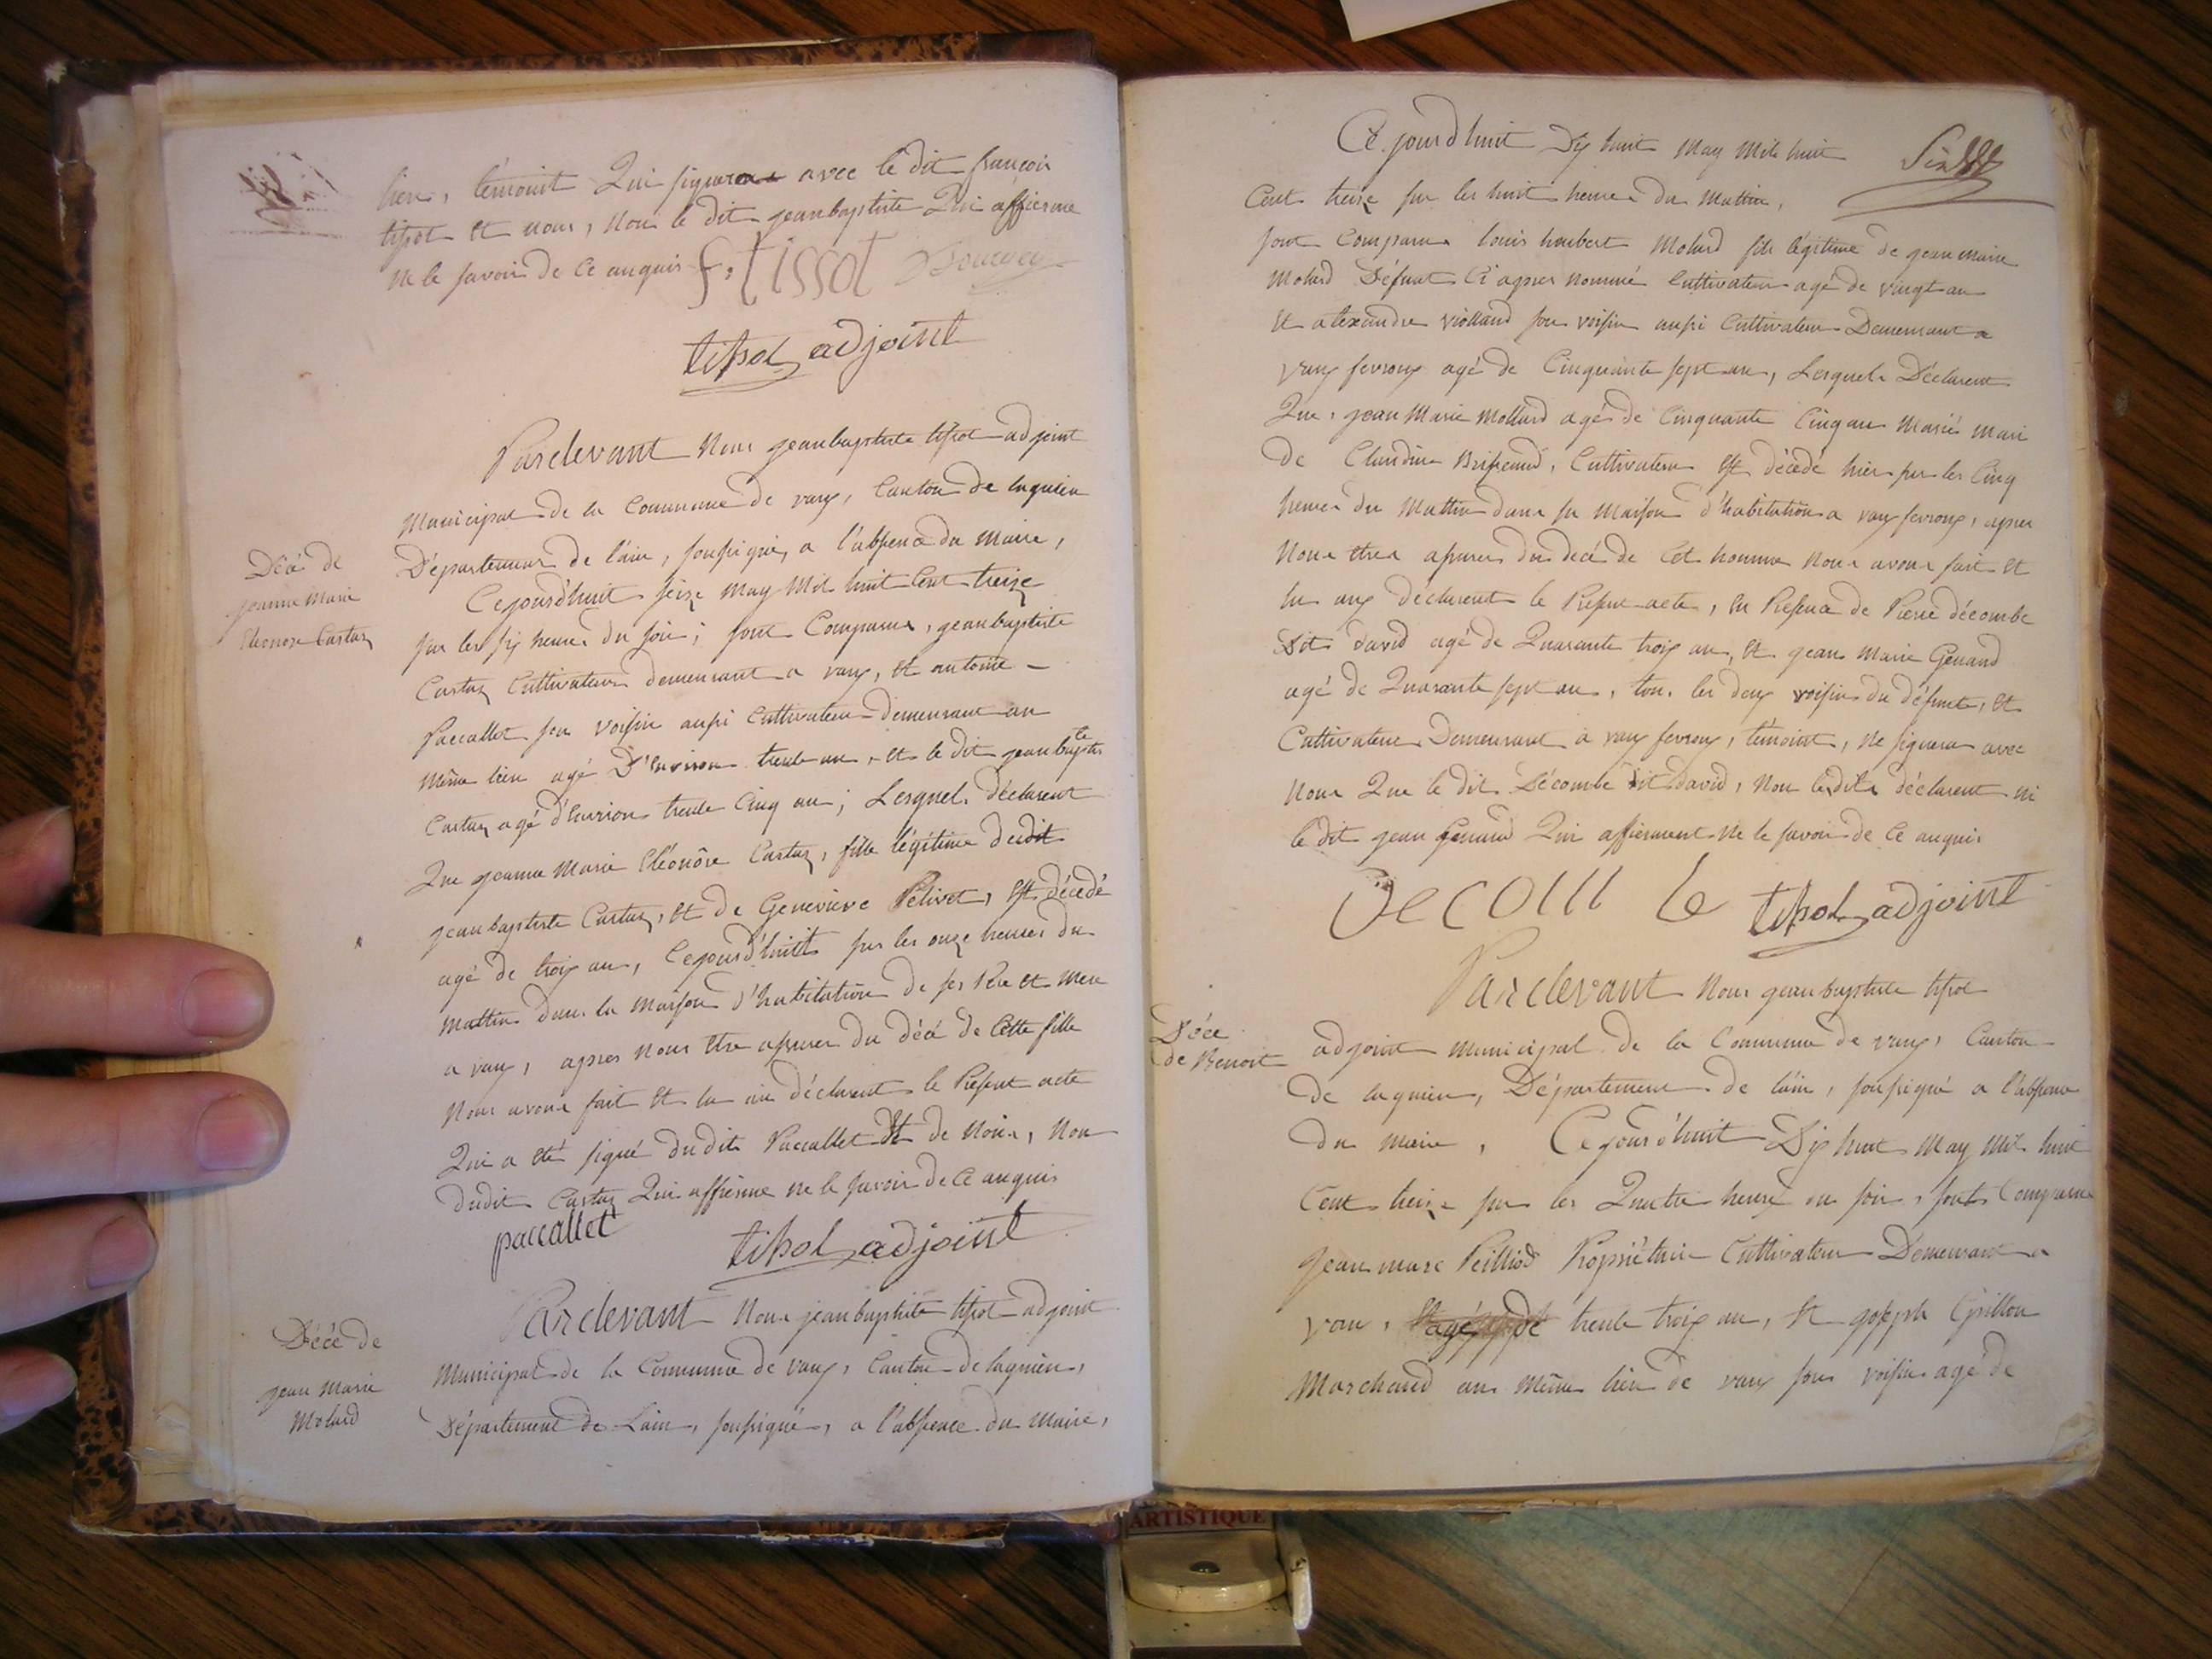 lieu, témoint Qui signeron avec le dit françois
tisot et nous, Non le dit jeanbaptiste Qui affierme
ne le savoir de ce enquis f. tissot
tissot adjoint
Pardevant Nous jeanbaptiste tisot adjoint
Municipal de la Commune de vaux, Canton de lagnieu
Département de l'ain, soussigné, a l'absence du Maire,
Décé de
jeanne Marie
Eleonore Cartaz
Cejourd'huit seize May Mil huit Cent treize
sur les six heures du soir ; sont Comparus, jeanbaptiste
Cartaz Cultivateur demeurant a vaux, et antoine
Paccallet son voisin aussi Cultivateur demeurant au
même lieu agé D'environ trente an, et le dit jeanbaptiste
Cartaz agé d'environ trente Cinq an ; Lesquels déclarent
Que jeanne Marie Eléonôre Cartaz, fille légitime dudit
jeanbaptiste Cartaz, et de Genevieve Pelivet, est décedé
agé de troix an, Cejourd'huit sur les onze heures du
Mattin dans la Maison d'habitation de ses Pere et Mere
a vaux, apres nous etre assurer du décé de Cette fille
Nous avons fait et lu au déclarent le Présent acte
Qui a été signé dudit Paccallet et de Nous, Non
dudit Cartaz Qui affirme ne le savoir de Ce enquis
paccallet tissot adjoint
Décé de
jean Marie
Molard
Pardevant Nous jeanbaptiste tisot adjoint
Municipal de la Commune de vaux, Canton de lagnieu,
Département de Lain, soussigné, a l'absence du Maire,
Ce jourd'huit Dix huit May Mil huit
Cent treize sur les huit heures du Mattin,
sont Comparus louis humbert Molard fils légitime de jean marie
Molard Défunt Ci apres nommé Cultivateur agé de vingt an
et alexandre violland son voisin aussi Cultivateur Demeurant a
vaux fevroux agé de Cinquante sept an, Lesquels Déclarent
Que jean Marie Mollard agé de Cinquante Cinq an Marié mari
de Claudine Brissaud, Cultivateur est décédé hier sur les Cinq
heures du Mattin dans sa Maison d'habitation a vaux fevroux, apres
Nous etre assurer du décé de Cet homme Nous avons fait et
lu aux déclarent le Présent acte, en Présence de Pierre décombe
Dit david agé de Quarante troix an, et jean Marie Genaud
agé de Quarante sept an, tous les deux voisins du défunt, et
Cultivateur Demeurant a vaux fevroux, témoint, ne signera avec
Nous Que le dit Décombe dit david, Non les dits déclarent ni
le dit jean Genaud Qui affierment ne le savoir de Ce enquis
tissot adjoint
Pardevant Nous jeanbaptiste tisot
Décé
de Benoit
adjoint municipal de la Commune de vaux, Canton
de lagnieu, Département de l'ain, soussigné a l'absence
du maire, Cejourd'huit Dix huit May Mil huit
Cent treize sur les Quatre heures du soir, sont Comparus
jean marc Peilliod Propriétaire Cultivateur Demeurant a
vaux, agé de trente troix an, et joseph Grillon
Marchand au même lieu de vaux son voisin agé de
ARTISTIQUE